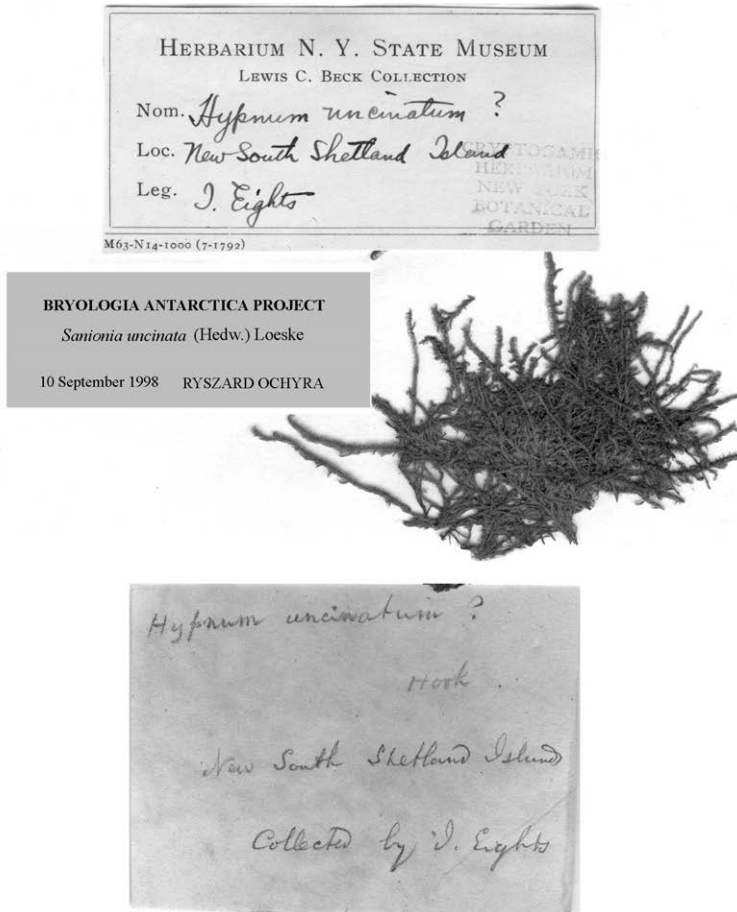 HERBARIUM N. Y. STATE MUSEUM
LEWIS C. BECK COLLECTION
Nom. Hypnum uncinatum ?
Loc. New South Shetland Island
Leg. I. Eights
CRYPTOGAMIC
HERBARIUM
NEW YORK
BOTANICAL
GARDEN
M63-N14-1000 (7-1792)
BRYOLOGIA ANTARCTICA PROJECT
Sanionia uncinata (Hedw.) Loeske
10 September 1998 RYSZARD OCHYRA
Hypnum uncinatum ?
Hook.
New South Shetland Island
Collected by I. Eights